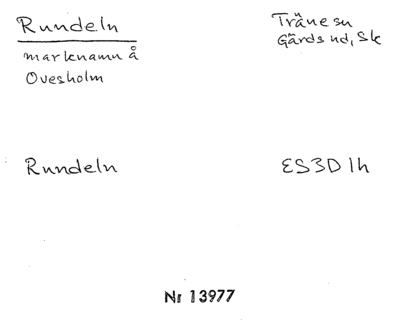 Rundeln
marknamn å
Ovesholm
Träne sn
Gärds hd, Sk
Rundeln
ES3D1h
Nr 13977